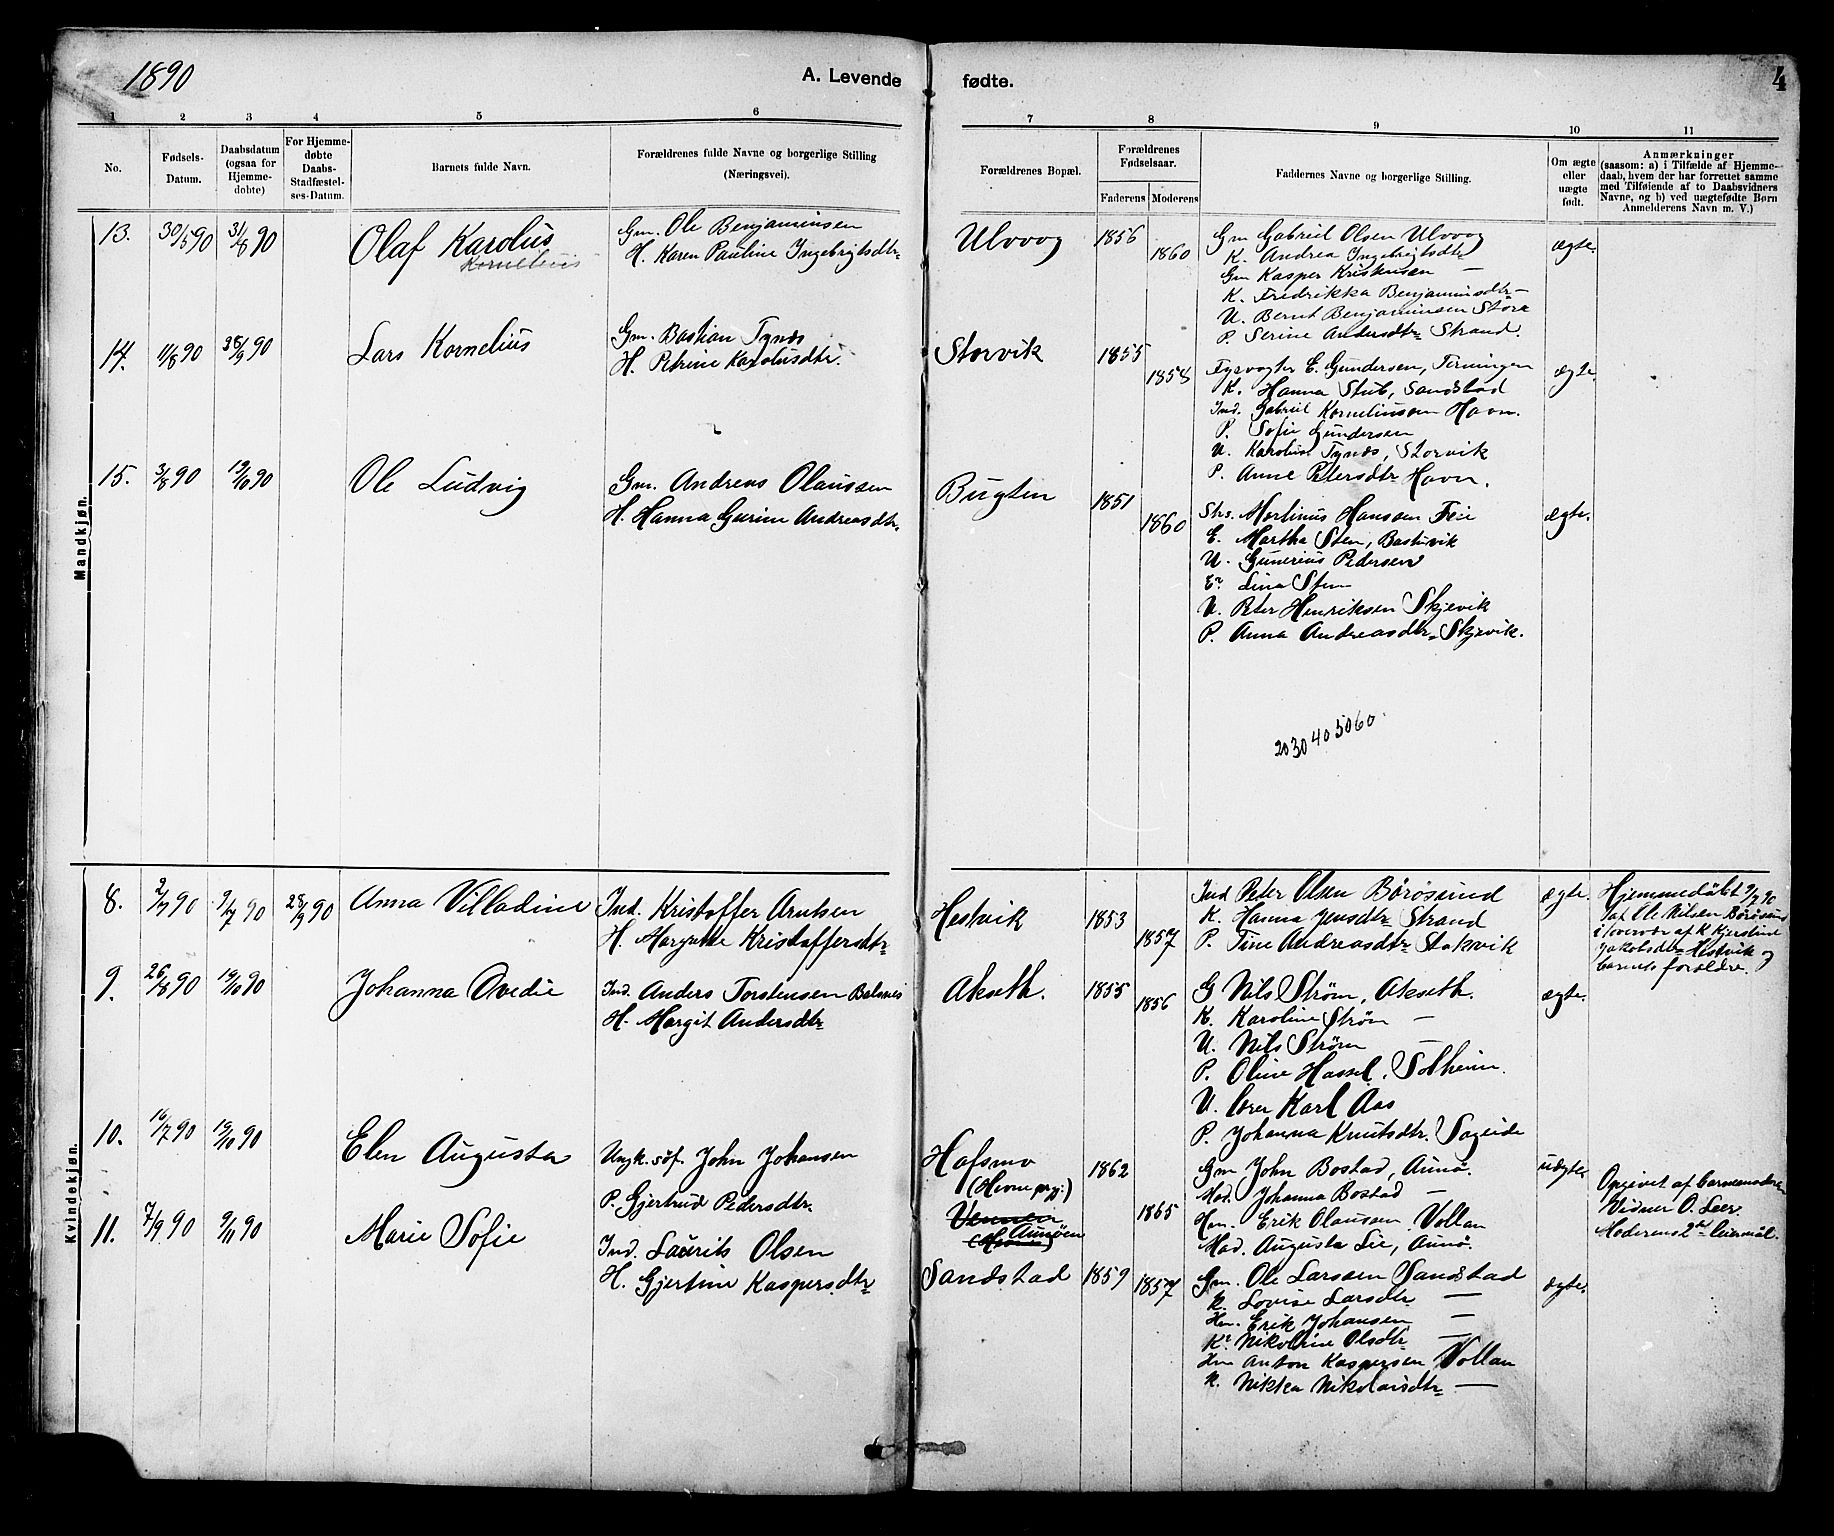 1890
A. Levende fødte.
4
1 2 3 4 5 6 7 8 9 10 11
No.
Fødsels-
Datum.
Daabsdatum
(ogsaa for
Hjemme-
døbte)
For Hjemme-
døbte
Daabs-
Stadfæstel-
ses-Datum.
Barnets fulde Navn.
Forældrenes fulde Navne og borgerlige Stilling
(Næringsvei).
Forældrenes Bopæl.
Forældrenes
Fødselsaar.
Faderens Moderens
Faddernes Navne og borgerlige Stilling.
Om ægte
eller
uægte
født.
Anmærkninger
(saasom: a) i Tilfælde af Hjemme-
daab, hvem der har forrettet samme
med Tilføiende af to Daabsvidners
Navne, og b) ved uægtefødte Børn
Anmelderens Navn m. V.)
Mandkjøn.
13. 30/5 90 31/8 90
Olaf Karolus
Kornelius
Gm. Ole Benjaminsen
H. Karen Pauline Ingebrigtsdtr
Ulvvog 1856 1860
Gm Gabriel Olsen Ulvvog
K. Andrea Ingebrigtsdtr
Gm Kasper Kristensen —
K. Fredrikka Benjaminsdtr —
U. Bernt Benjaminsen Støre
P. Serine Andersdtr Strand.
ægte.
14. 11/8 90 28/9 90
Lars Kornelius
Gm. Bastian Tynds
H. Petrine Karolusdtr.
Storvik 1855 1858
E. Gundersen, Terningen
K. Hanna Stub, Sandstad
Ind. Gabriel Korneliussen Havn.
P. Sofie Gundersen
U. Karolius Tynds, Storvik
P. Anne Petersdtr Havn.
ægte.
15. 3/8 90 19/10 90
Ole Ludvig
Gm. Andreas Olaussen
H. Hanna Gurine Andreasdtr.
Bugten 1851 1860
Strs. Martinus Hansen Feie
E. Martha Sten, Bastuvik
U. Gunerius Pedersen
Lina Sten
U. Peter Henriksen Skjevik
P. Anna Andreasdtr Skjevik.
ægte.
20 30 40 50 60
Kvindekjøn.
8. 2/7 90 9/7 90 28/9 90
Anna Villadine
Ind. Kristoffer Arntsen
H. Margrethe Kristoffersdtr
Hestvik 1853 1857
Ind Peter Olsen Börösund
K. Hanna Jensdtr Strand
P. Tine Andreasdtr Stokvik
ægte.
Hjemmedöbt 9/7 90
af Ole Nilsen Börösund
i overvær af K Kjerstine
Jakobsdtr Hestvik og
barnets forældre.
9. 26/8 90 19/10 90
Johanna Ovedie
Ind. Anders Torstensen Balsnes
H. Margit Andersdtr
Akseth. 1855 1856
G Nils Strøm, Akseth.
K. Karoline Strøm —
U. Nils Strøm
P. Oline Hassel, Solheim.
U. Karl Aas
P. Johanna Knutsdtr. Sageide
ægte.
10. 16/7 90 19/10 90
Elen Augusta
Ungk. söf. John Johansen
P. Gjertrud Pedersdtr.
Hafsmo
(Hevne prgj:)
Aunöen
1862 1865
Gm John Bostad, Aunö.
Mad. Johanna Bostad —
Hm. Erik Olausen Vollan
Mad. Augusta Lie, Aunö.
uægte
Opgivet af barnemoderen
Vidner O. Leer.
Moderens 2det leiermål.
11. 7/9 90 9/11 90
Marie Sofie
Ind. Laurits Olsen
H. Gjertine Kaspersdtr
Sandstad 1859 1857
Gm. Ole Larssen Sandstad
K. Lovise Larsdtr —
Hm. Erik Johansen —
K. Nikoline Olsdtr —
Hm Anton Kaspersen Vollan
K. Nikka Nikolaisdtr —
ægte.